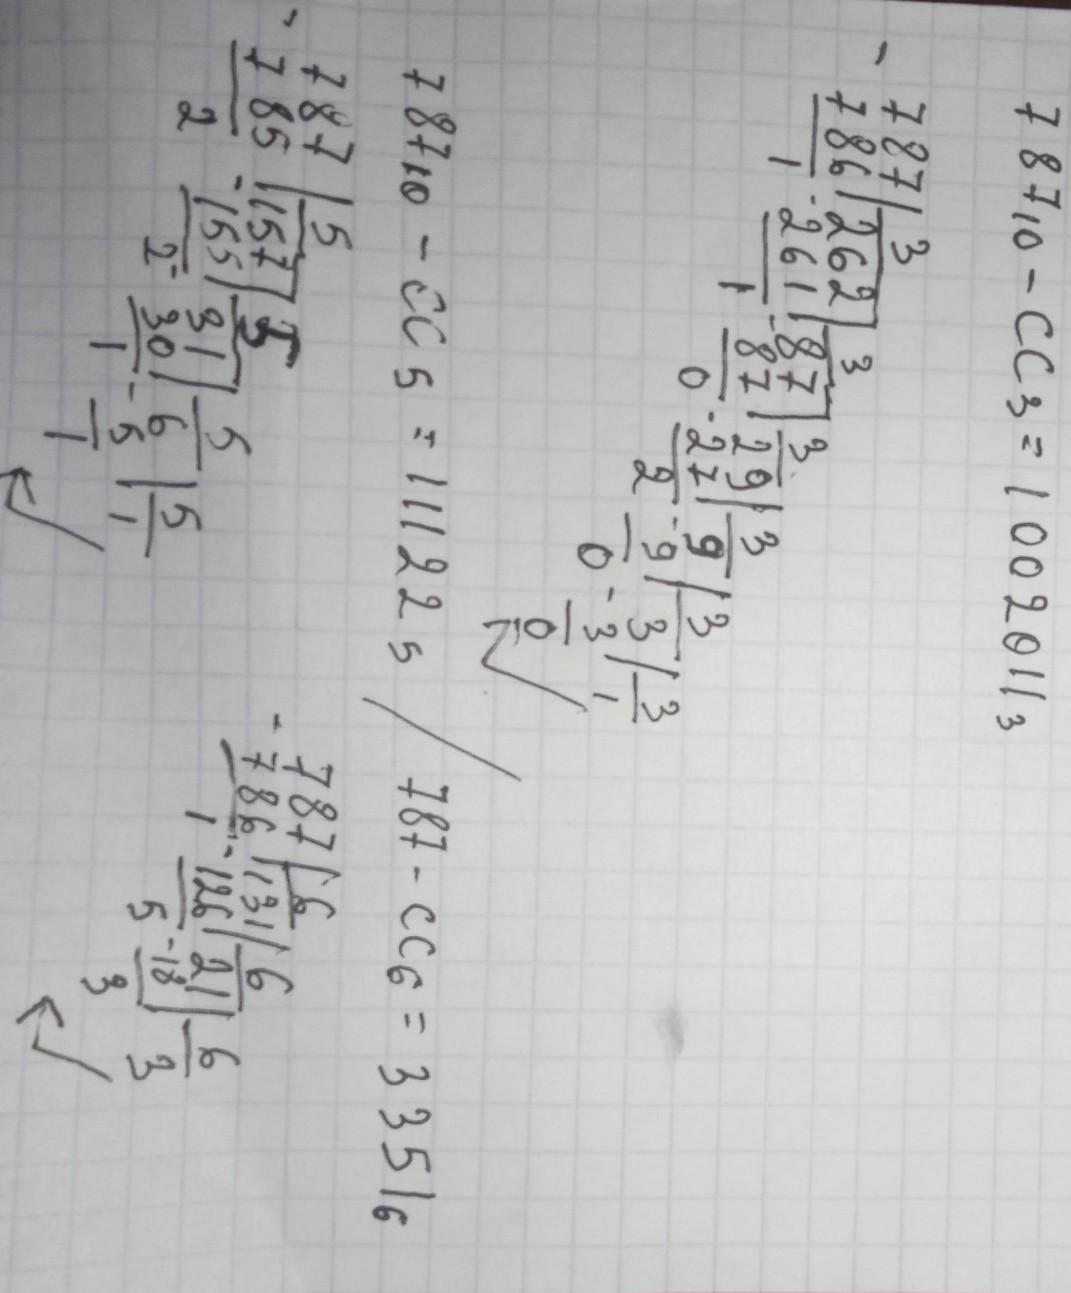 787₁₀ - CC3 = 1002011₃
- 787 | 3
786 | - 262 | 3
1 261 | - 87 | 3
1 87 | - 29 | 3
0 27 | - 9 | 3
2 9 | - 3 | 3
0 3 | 1
0
787₁₀ - CC5 = 11122₅ / 787 - CC6 = 3351₆
- 787 | 5
785 | - 157 | 5
2 155 | - 31 | 5
2 30 | - 6 | 5
1 5 | 1
1
- 787 | 6
786 | - 131 | 6
1 126 | - 21 | 6
5 18 | 3
3